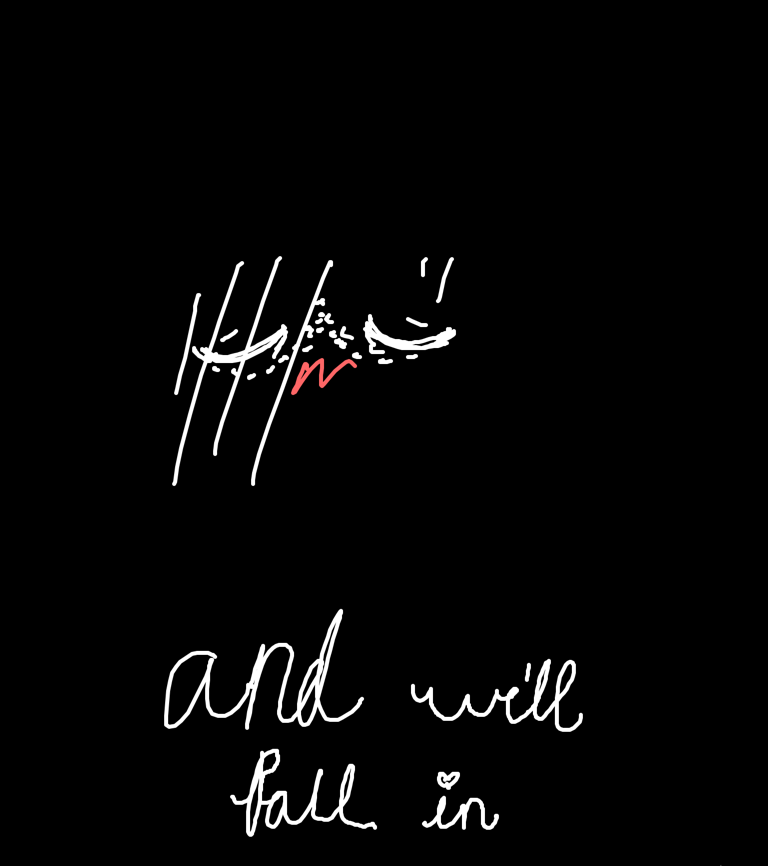 and we'll
fall in